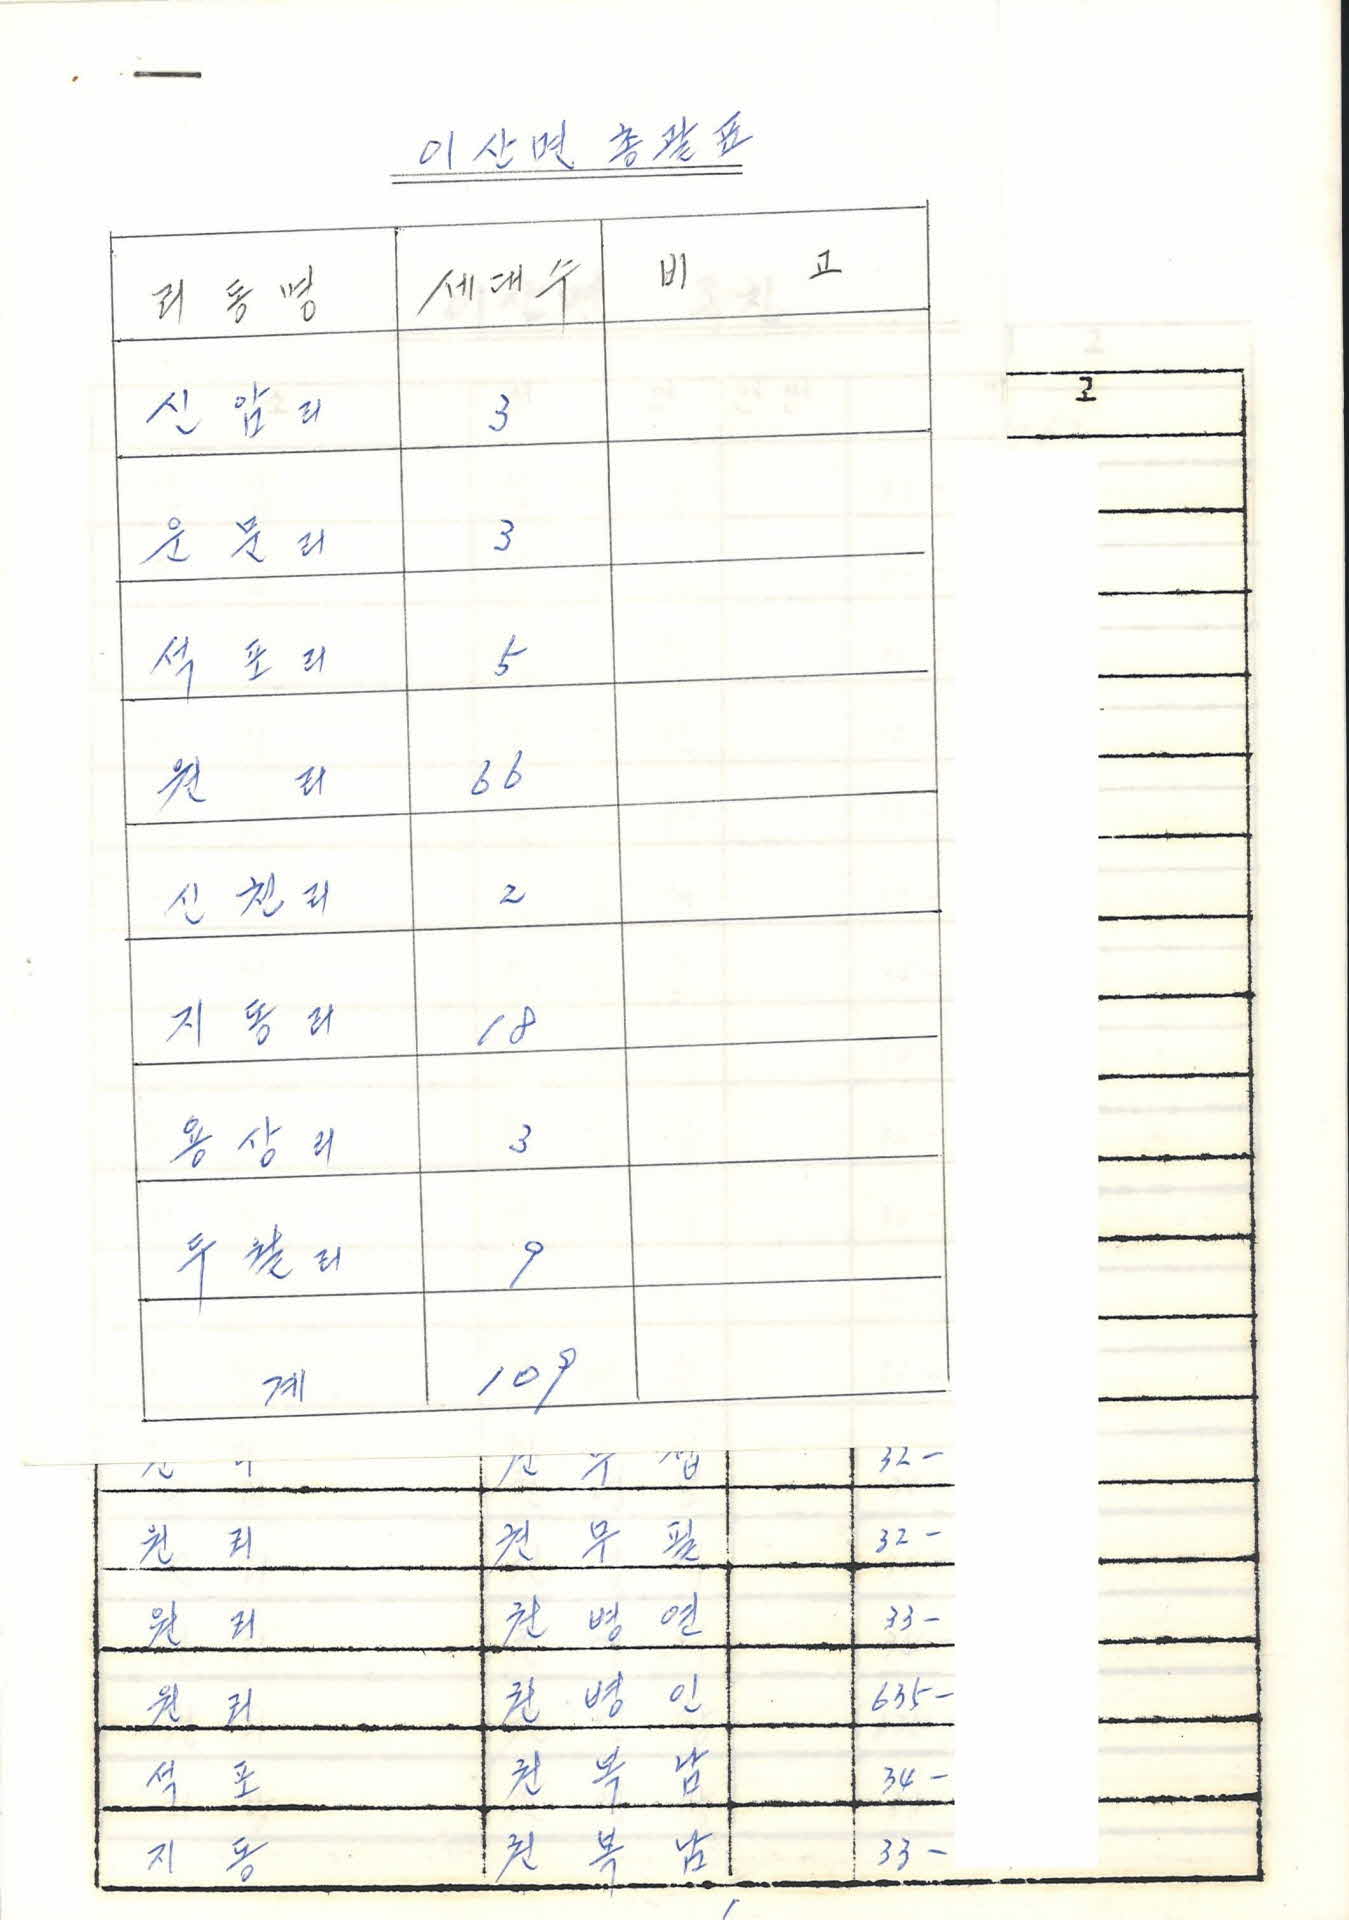 이산면 총괄표
리동명 세대수 비 고
신암리 3
운문리 3
석포리 5
원 리 66
신천리 2
지동리 18
용상리 3
두월리 9
계 109
고
32-
원 리 권무필 32-
원 리 권병연 33-
원 리 권병인 635-
석 포 권복남 34-
지 동 권복남 33-